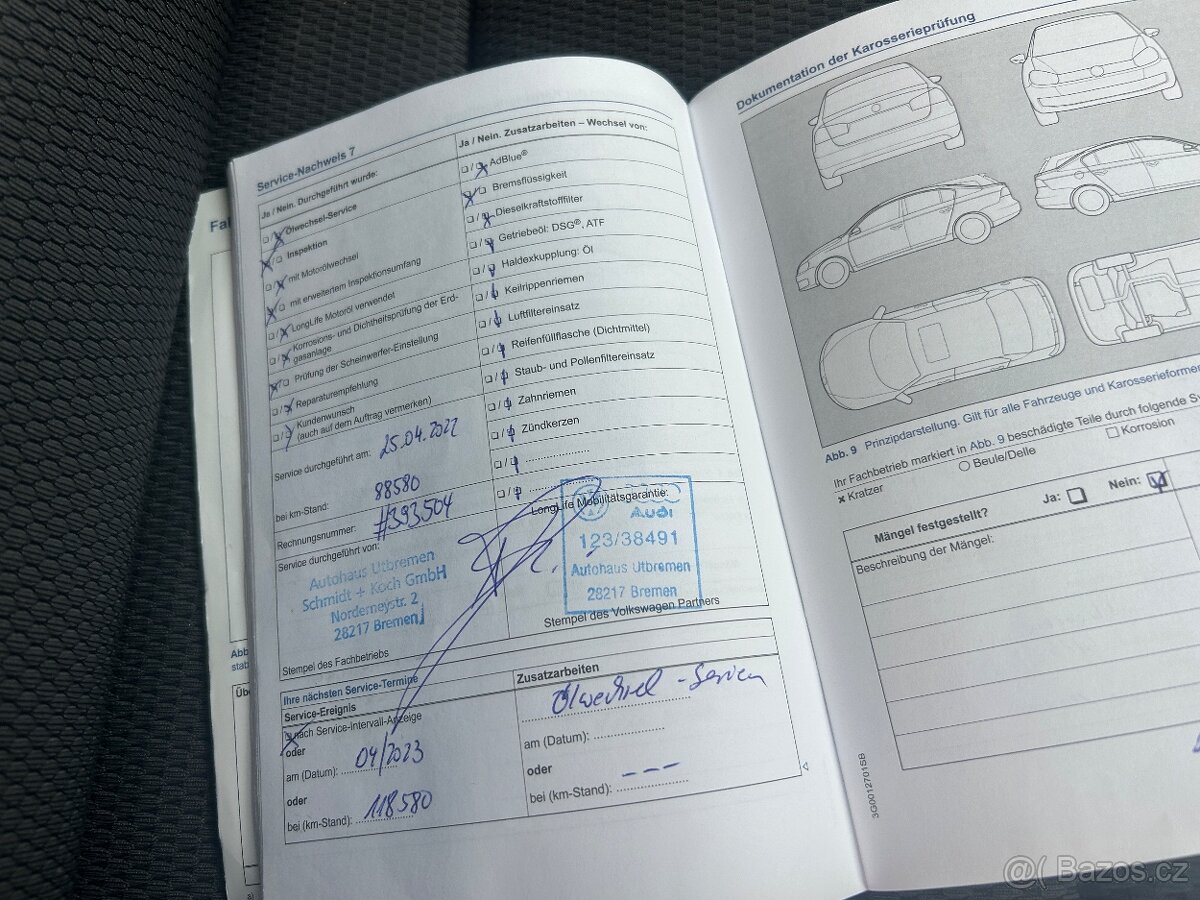 Service-Nachweis 7
Ja / Nein. Durchgeführt wurde:
Ölwechsel-Service
Inspektion
mit Motorölwechsel
mit erweitertem Inspektionsumfang
LongLife Motoröl verwendet
Korrosions- und Dichtheitsprüfung der Erd-
gasanlage
Prüfung der Scheinwerfer-Einstellung
Reparaturempfehlung
Kundenwunsch
(auch auf dem Auftrag vermerken)
Service durchgeführt am: 25.04.2022
bei km-Stand: 88580
Rechnungsnummer: #393504
Service durchgeführt von:
Autohaus Utbremen
Schmidt + Koch GmbH
Norderneystr. 2
28217 Bremen
Stempel des Fachbetriebs
Ja / Nein. Zusatzarbeiten – Wechsel von:
AdBlue®
Bremsflüssigkeit
Dieselkraftstofffilter
Getriebeöl: DSG®, ATF
Haldexkupplung: Öl
Keilrippenriemen
Luftfiltereinsatz
Reifenfüllflasche (Dichtmittel)
Staub- und Pollenfiltereinsatz
Zahnriemen
Zündkerzen
LongLife Mobilitätsgarantie:
Audi
123/38491
Autohaus Utbremen
28217 Bremen
Stempel des Volkswagen Partners
Ihre nächsten Service-Termine
Service-Ereignis
nach Service-Intervall-Anzeige
oder
am (Datum): 04/2023
oder
bei (km-Stand): 118580
Zusatzarbeiten
Ölwechsel - Service
am (Datum):
oder
bei (km-Stand): ---
Dokumentation der Karosserieprüfung
Abb. 9 Prinzipdarstellung. Gilt für alle Fahrzeuge und Karosserieformen
Ihr Fachbetrieb markiert in Abb. 9 beschädigte Teile durch folgende
Kratzer
Beule/Delle
Korrosion
Mängel festgestellt? Ja: Nein:
Beschreibung der Mängel:
3G0012701SB
@( Bazos.cz